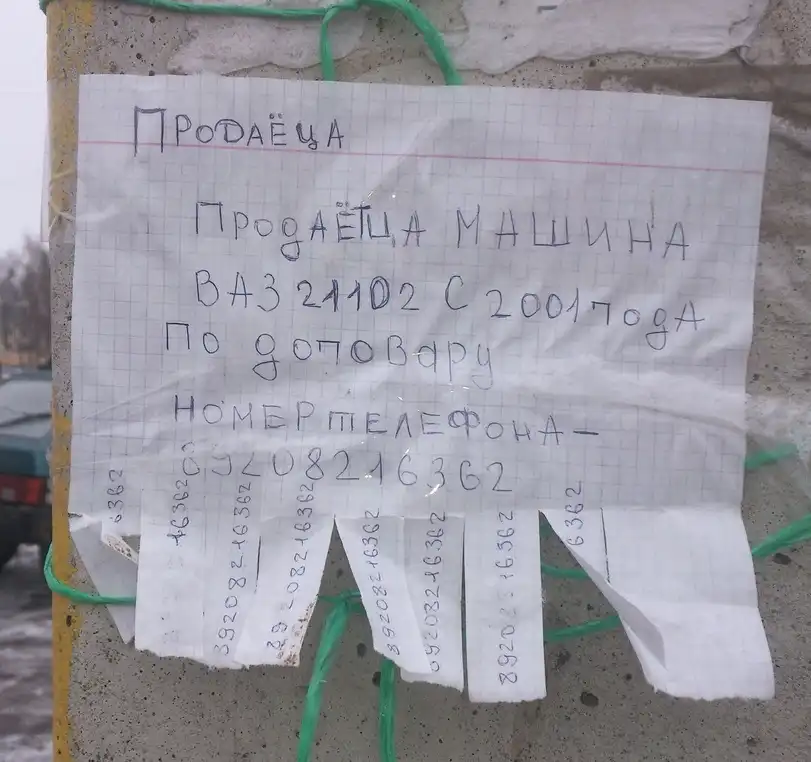 ПРОДАЁЦА
ПРОДАЁТЦА МАШИНА
ВАЗ 21102 С 2001 года
ПО договару
НОМЕР ТЕЛЕФОНА –
89208216362
6362
16362
89208216362
89208216362
89208216362
89208216362
89208216362
6362